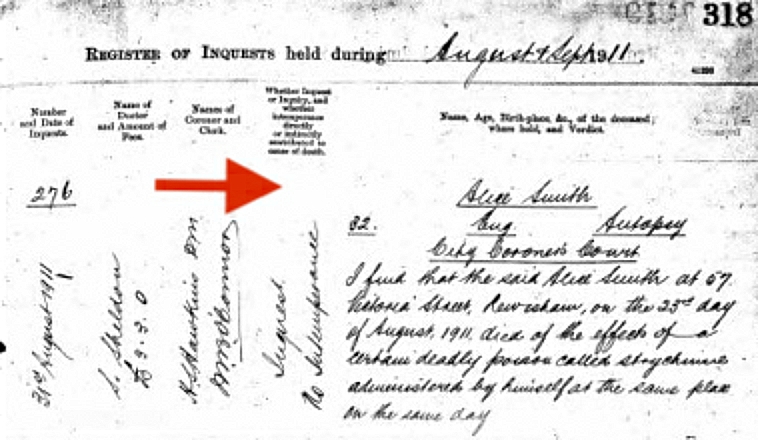 318
REGISTER OF INQUESTS held during August & Sept 1911.
Number and Date of Inquests.
Name of Doctor and Amount of Fees.
Names of Coroner and Clerk.
Whether Inquest
or Inquiry, and
whether
intemperance
directly
or indirectly
contributed to
cause of death.
Name, Age, Birth-place, &c., of the deceased;
where held, and Verdict.
276
31st August 1911
S. Sheldon
£3.3.0
Inquest
No Intemperance
Alice Smith
32. Eng. Autopsy
City Coroner's Court
I find that the said Alice Smith at 57
Victoria Street, Lewisham, on the 23rd day
of August, 1911, died of the effects of a
certain deadly poison called strychnine
administered by himself at the same place
on the same day